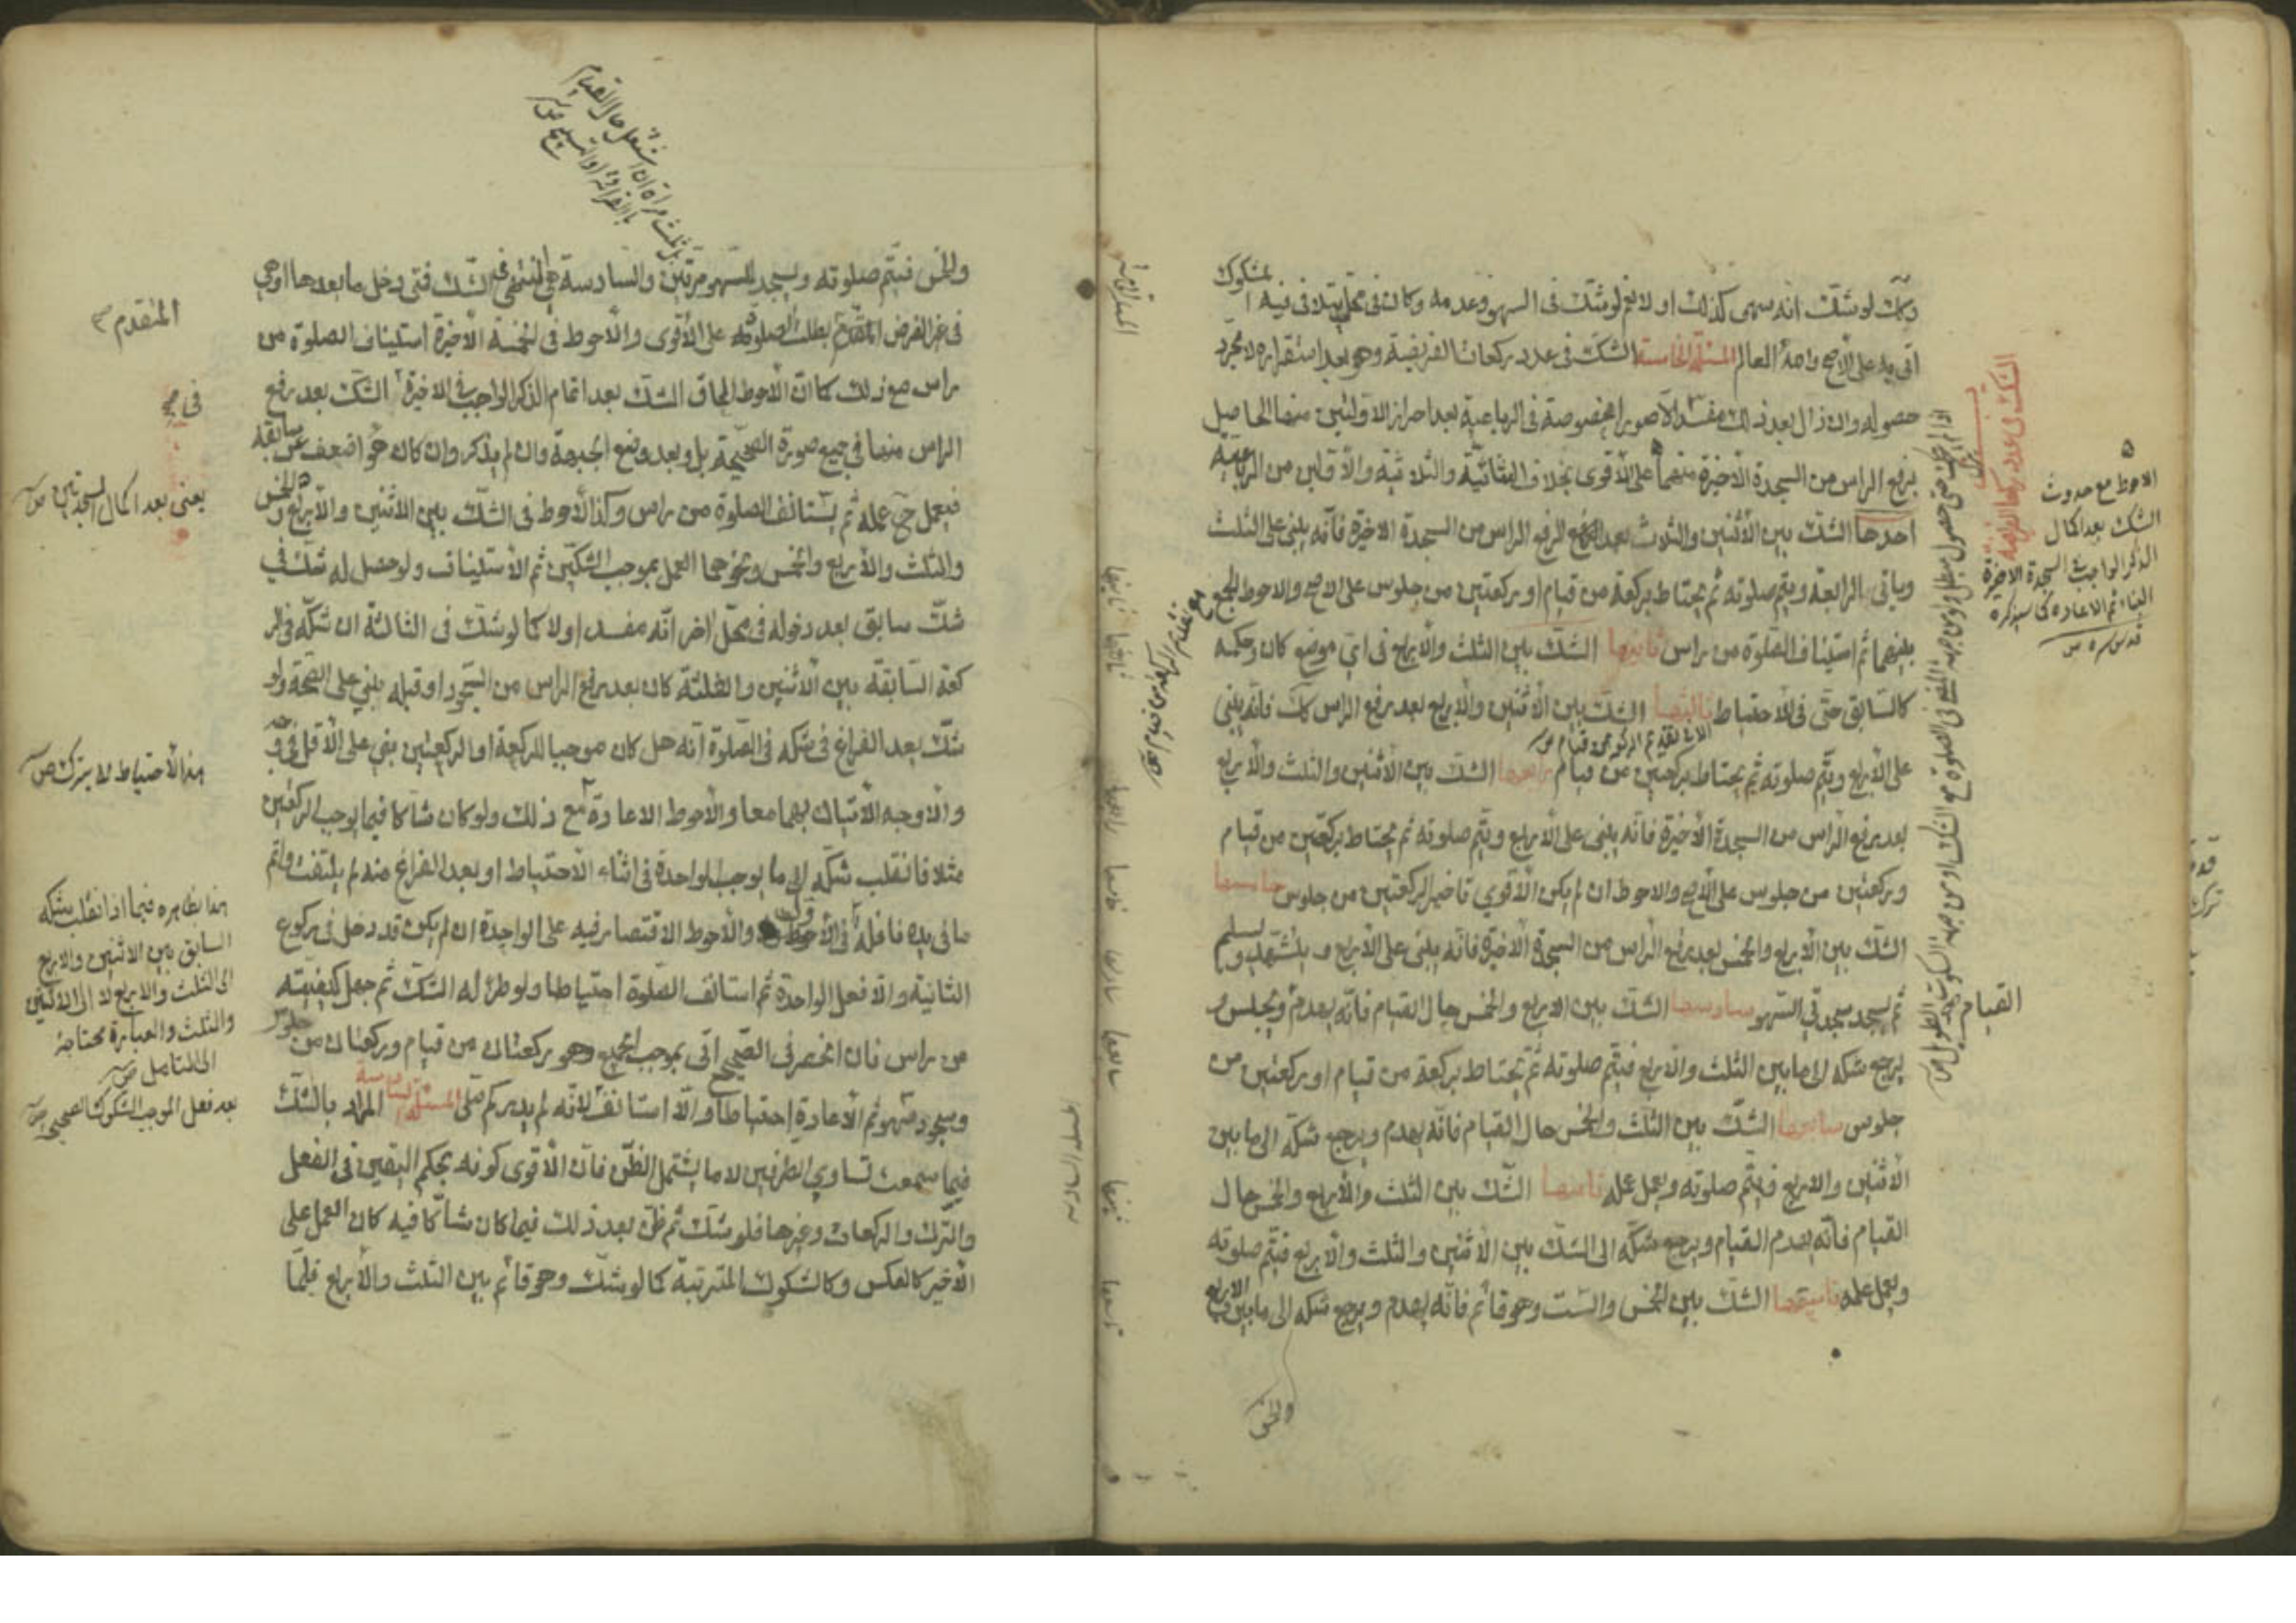 وكك لو شك انه سهى كذلك اولا نعم لو شك فى السهو وعدمه وكان فى محل يتلافى فيه المشكوك
اتى به على الاصح والله العالم المسئلة الخامسة الشك فى عدد ركعات الفريضة وهو بعد استقراره لا مجرد
حصوله وان زال بعد ذلك مفسد الا صورا مخصوصة فى الرباعية بعد احراز الاولتين منها الحاصل
برفع الراس من السجدة الاخيرة منهما على الاقوى بخلاف الثنائية والثلاثية والاولين من الرباعية
احدها الشك بين الاثنين والثلاث بعد الرفع الراس من السجدة الاخيرة فانه يبنى على الثلث
وياتى بالرابعة ويتم صلوته ثم يحتاط بركعة من قيام او بركعتين من جلوس على الاصح والاحوط الجمع
بينهما ثم استيناف الصلوة من راس ثانيها الشك بين الثلث والاربع فى اى موضع كان وحكمه
كالسابق حتى فى الاحتياط ثالثها الشك بين الاثنين والاربع بعد رفع الراس كك فانه يبنى
على الاربع ويتم صلوته ثم يحتاط بركعتين من قيام رابعها الشك بين الاثنين والثلث والاربع
بعد رفع الراس من السجدة الاخيرة فانه يبنى على الاربع ويتم صلوته ثم يحتاط بركعتين من قيام
وركعتين من جلوس على الاصح والاحوط ان لم يكن الاقوى تاخير الركعتين من جلوس خامسها
الشك بين الاربع والخمس بعد رفع الراس من السجدة الاخيرة فانه يبنى على الاربع و يتشهد ويسلم
ثم يسجد سجدتى السهو سادسها الشك بين الاربع والخمس حال القيام فانه يهدم ويجلس و
يرجع شكه الى ما بين الثلث والاربع فيتم صلوته ثم يحتاط بركعة من قيام او بركعتين من
جلوس سابعها الشك بين الثلث والخمس حال القيام فانه يهدم ويرجع شكه الى ما بين
الاثنين والاربع فيتم صلوته ويعمل عمله ثامنها الشك بين الثلث والاربع والخمس حال
القيام فانه يهدم القيام ويرجع شكه الى الشك بين الاثنين والثلث والاربع فيتم صلوته
ويعمل عمله تاسعها الشك بين الخمس والست وهو قائم فانه يهدم ويرجع شكه الى ما بين الاربع
والخمس
الاحوط مع حدوث
الشك بعد اكمال
الذكر الواجب فى السجدة الاخيرة
البناء ثم الاعادة كما سيذكره
قدس سره
الشك فى عدد ركعات الفريضة
القيام
ثانيها
ثالثها
رابعها
خامسها
سادسها
سابعها
ثامنها
تاسعها
والخمس فيتم صلوته ويسجد للسهو مرتين والسادسة الشك فتى دخل ما بعدها او هى
فى غير الفرض المتقدم بطلت الصلوة على الاقوى والاحوط فى الخمسة الاخيرة استيناف الصلوة من
راس مع ذلك كما ان الاحوط الحاق الشك بعد اتمام الذكر الواجب فى الاخيرة الشك بعد رفع
الراس منها فى جميع صورة الصحيحة بل وبعد وضع الجبهة وان لم يذكر وان كان هو اضعف من سابقه
فيعمل ح عمله ثم يستانف الصلوة من راس وكذا الاحوط فى الشك بين الاثنين والاربع والخمس
والثلث والاربع والخمس ونحوهما العمل بموجب الشكين ثم الاستيناف ولو حصل له شك فى
شك سابق بعد دخوله فى محل اخر انه مفسد او لا كما لو شك فى الثالثة ان شكه فى الر
كعة السابقة بين الاثنين والثلثة كان بعد رفع الراس من السجود او قبله بنى على الصحة ولو
شك بعد الفراغ فى شكه فى الصلوة انه هل كان موجبا للركعة او الركعتين بنى على الاقل
والاوجه الاتيان بهما معا والاحوط الاعادة مع ذلك ولو كان شاكا فيما يوجب الركعتين
مثلا فانقلب شكه الى ما يوجب الواحدة فى اثناء الاحتياط او بعد الفراغ منه لم يلتفت واتم
ما فى يده نافلة فى الاحوط والاحوط الاقتصار فيه على الواحدة ان لم يكن قد دخل فى ركوع
الثانية والا فعل الواحدة ثم استانف الصلوة احتياطا ولو طرء له الشك ثم جهل كيفيته
من راس فان انحصر فى الصحيح اتى بموجب الجميع وهو ركعتان من قيام وركعتان من جلوس
وسجود سهو ثم الاعادة احتياطا والا استانف لانه لم يدر كم صلى المسئلة السادسة المراد بالشك
فيما سمعت تساوى الطرفين لا ما يشتمل الظن فان الاقوى كونه بحكم اليقين فى الفعل
والترك والركعات وغيرها فلو شك ثم ظن بعد ذلك فيما كان شاكا فيه كان العمل على
الاخير كالعكس وكالشكوك المترتبة كما لو شك وهو قائم بين الثلث والاربع فلما
المتقدم
يعنى بعد اكمال السجدتين
هذا الاحتياط لا يترك
هذا بظاهره فيما اذا انقلب شكه
السابق بين الاثنين والاربع
الى الثلث والاربع لا الى الاثنين
والثلث والعبارة محتاجة
الى التامل
بعد فعل الموجب الشكوك الصحيحة